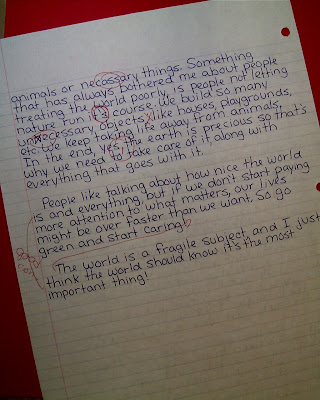 animals or necossary things. Something
that has always bothered me about people
treating the world poorly, is people not letting
nature run it's course. We build so many
unecessary objects like houses, playgrounds,
etc. We keep taking life away from animals.
In the end, yes, the earth is precious so that's
why we need to take care of it along with
everything that goes with it.
People like talking about how nice the world
is and everything, but if we don't start paying
more attention to what matters, our lives
might be over faster than we want. So go
green and start caring!
The world is a fragile subject, and I just
think the world should know it's the most
important thing!